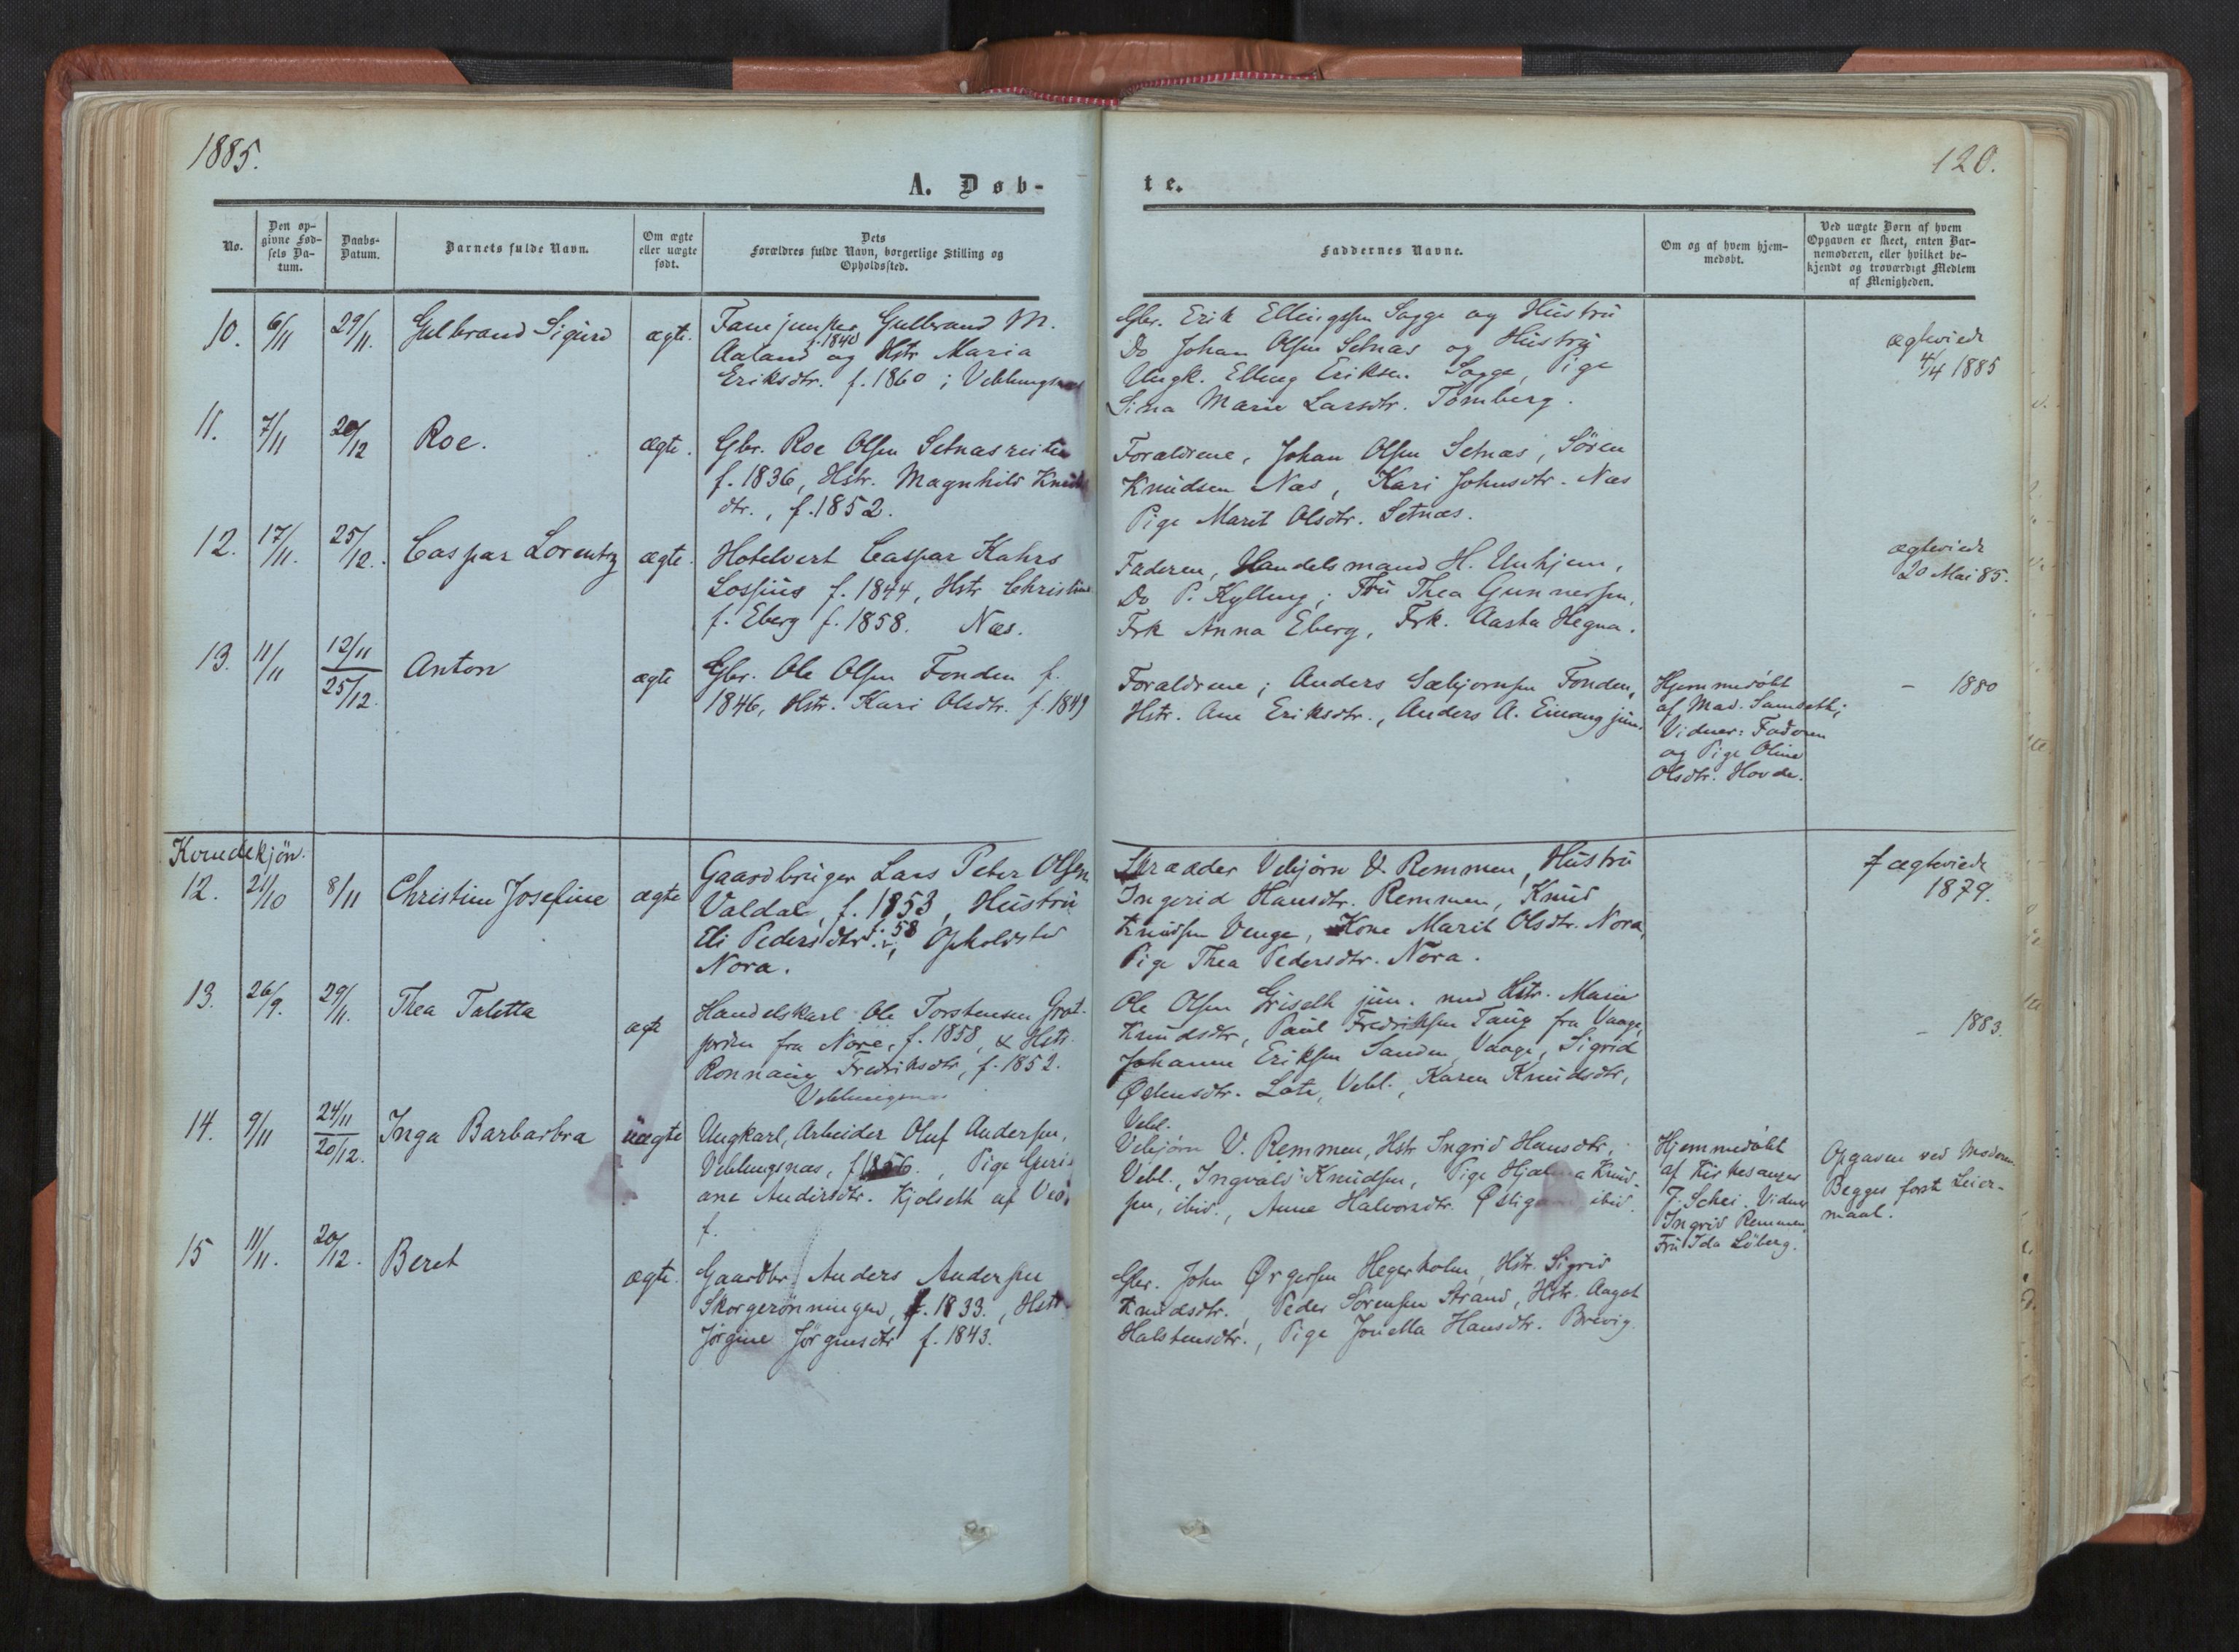 1885.
120.
A. Døb-
te.
No.
Den op-
givne Fød-
sels Da-
tum.
Daabs-
Datum.
Barnets fulde Navn.
Om ægte
eller uægte
født.
Dets
Forældres fulde Navn, borgerlige Stilling og
Opholdssted.
Faddernes Navne.
Om og af hvem hjem-
medøbt.
Ved uægte Børn af hvem
Opgaven er skeet, enten Bar-
nemoderen, eller hvilket be-
kjendt og troværdigt Medlem
af Menigheden.
10. 6/11 29/11. Gulbrand Sigurd ægte.
Fanejunker Gulbrand M.
f. 1840
Aaland og Hstr Maria
Eriksdtr. f. 1860; Veblungsnæs
Gbr. Erik Ellingsen Sogge og Hustru
Do Johan Olsen Setnæs og Hustru
Ungk. Elling Eriksen Sogge, Pige
Sina Marie Larsdtr. Tomberg.
ægteviede
4/4 1885
11. 7/11 20/12 Roe. ægte.
Gbr. Roe Olsen Setnæsreiten
f. 1836, Hstr. Magnhild Knuds
dtr., f. 1852.
Forældrene, Johan Olsen Setnæs, Søren
Knudsen Næs, Kari Johnsdtr. Næs
Pige Marit Olsdtr. Setnæs.
12. 17/11. 25/12. Caspar Lorentz ægte.
Hotelvert Caspar Kahrs
Lossius f. 1844, Hstr Christine
f. Eberg f. 1858. Næs.
Faderen, Handelsmand H. Unhjem,
Do P. Kylling; Fru Thea Gunnersen,
Frk Anna Eberg, Frk. Aasta Hegna.
ægteviede
20 Mai 85.
13. 11/11 12/11 25/12. Anton ægte
Gbr. Ole Olsen Fonden f.
1846, Hstr. Kari Olsdtr. f. 1849
Forældrene; Anders Sæbjornsen Fonden,
Hstr. Ane Eriksdtr., Anders A. Einang jun.
Hjemmedøbt
af Mad. Samseth;
Vidner: Faderen
og Pige Oline
Olsdtr. Hovde.
– 1880
Kvindekjøn.
12. 21/10 8/11 Christine Josefine ægte
Gaardbruger Lars Peter Olsen
Valdal, f. 1853, Hustru
Eli Pedersdtr. f. 58, Opholdsted
Nora.
Skrædder Vebjørn V. Remmen, Hustru
Ingerid Hansdtr. Remmen, Knud
Knudsen Venge, Kone Marit Olsdtr. Nora,
Pige Thea Pedersdtr. Nora.
ægteviede
1879.
13. 26/9. 29/11. Thea Taletta ægte
Handelskarl Ole Torstensen Grot-
jorden fra Nore, f. 1858, & Hstr.
Ronnaug Fredriksdtr, f. 1852.
Veblungsnæs
Ole Olsen Griseth jun. med Hstr. Marie
Knudsdtr, Paul Fredriksen Taug fra Vaage,
Johanne Eriksen Sanden, Vaage, Sigrid
Østensdtr. Late, Vebl., Karen Knudsdtr,
Vebl.
– 1883.
14. 9/11 24/11 20/12. Inga Barbarbra uægte
Ungkarl, Arbeider Oluf Andersen,
Veblungsnæs, f. 1856., Pige Guri-
ane Andersdtr. Kjølseth af Vedø,
f.
Vebjørn V. Remmen, Hstr Ingrid Hansdtr;
Vebl., Ingvald Knudsen, Pige Hjalma Knud-
sen, ibid., Anne Halvorsdtr. Østigaard ibid.
Hjemmedøbt
af Kirkesanger
J. Schei. Vidner
Ingrid Remmen,
Fru Ida Löberg.
Opgaven ved Moderen.
Begges forste Leier-
maal.
15 11/11. 20/12. Beret ægte.
Gaardbr. Anders Andersen
Skorgerønningen, f. 1833., Hstr.
Jørgine Jørgensdtr f. 1843.
Gbr. John Ørgersen Hegerholm, Hstr. Sigrid
Knudsdtr., Peder Sørensen Strand, Hstr. Aagot
Halstensdtr., Pige Jonetta Hansdtr. Brevig.